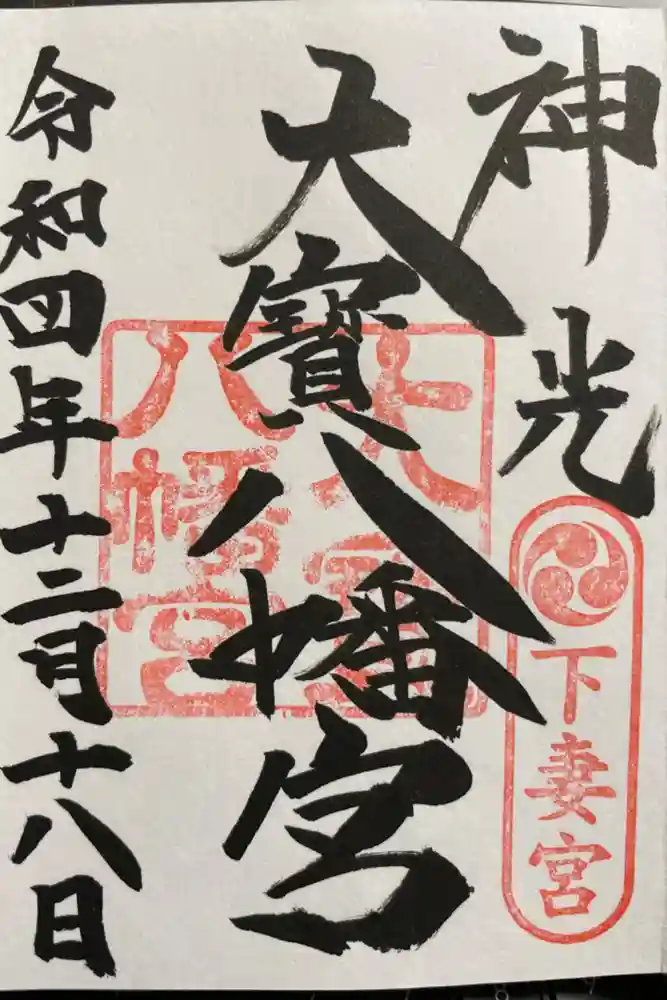 神光
下妻宮
大寳八幡宮
大寳
八幡宮
令和四年十二月十八日